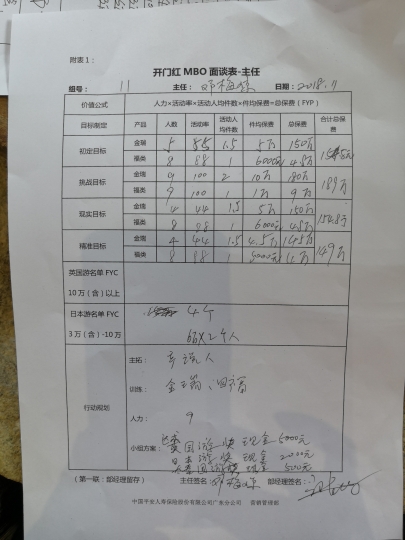 附表1：
开门红MBO面谈表-主任
组号： 11 主任： 日期：2018.11
价值公式 人力×活动率×活动人均件数×件均保费=总保费（FYP）
目标制定 产品 人数 活动率 活动人均件数 件均保费 总保费 合计总保费
初定目标 金瑞 5 1.5 5万 150万
福类 8 88 1 6000元 4.8万
挑战目标 金瑞 9 100 2 10万 180万 189万
福类 9 100 1 1万 9万
现实目标 金瑞 4 44 1.5 5万 150万 154.8万
福类 8 88 1 6000元 4.8万
精准目标 金瑞 4 44 1.5 4.5万 145万 149万
福类 8 88 1 5000元 4万
英国游名单 FYC
10万（含）以上
日本游名单 FYC 4个
3万（含）-10万
6万×2个人
行动规划
主拓：
训练： 金瑞
人力： 9
小组方案： 英国游 奖 现金 5000元
日本游 奖 现金 2000元
现金 500元
（第一联：部经理留存） 主任签名： 部经理签名：
中国平安人寿保险股份有限公司广东分公司 营销管理部